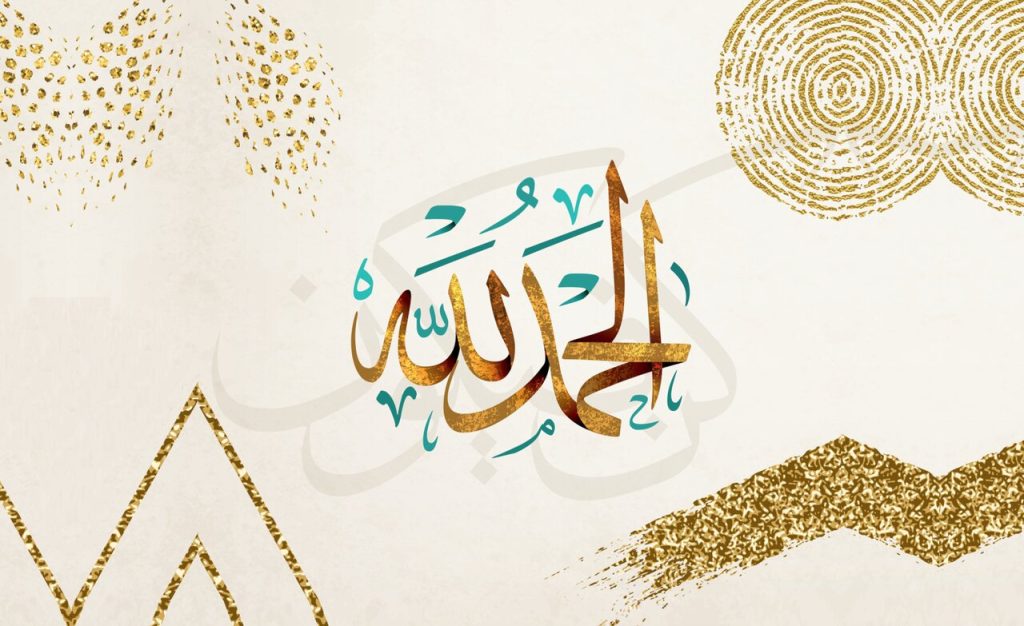 الحمدُ للّه